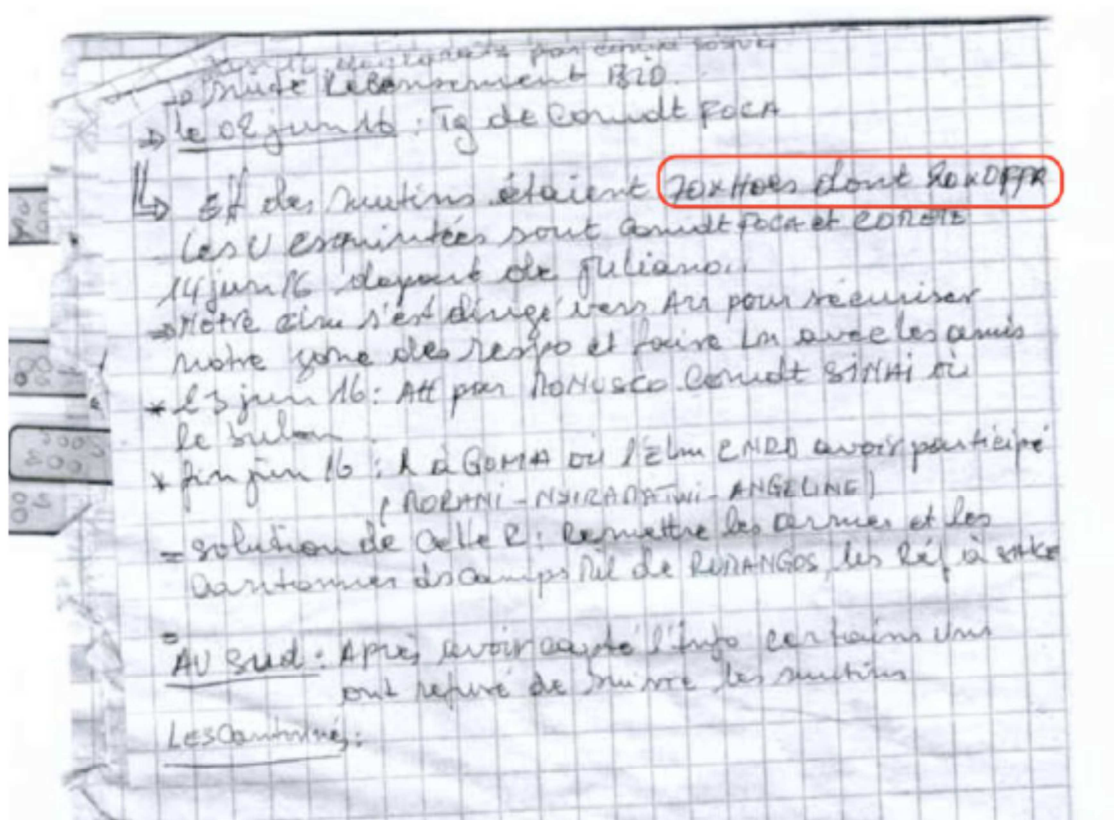 par
→ suite Recensement BID.
→ le 02 juin 16 : Tg de Comdt FOCA
Eff des mutins étaient 70xHoes dont 20xOffR
Les U esquintées sont Comdt FOCA et
14 juin 16 depart de Juliano..
→ Notre s'est dirigé vers pour sécuriser
notre zone des respo et faire Ln avec les amis
* 23 juin 16 : Att par MONUSCO Comdt SINAI où
le
* fin juin 16 : R à GOMA où l'Elm CNRD avoir participé
(MORANI - - ANGELINE)
= solution de Cette R : Remettre les armes et les
Cantonner ds Camps Mil de RUMANGOS, les Réf à SAKE
=
AU Sud : Après avoir capté l'info certains Uns
ont refusé de suivre les mutins
Les Cantonnés :